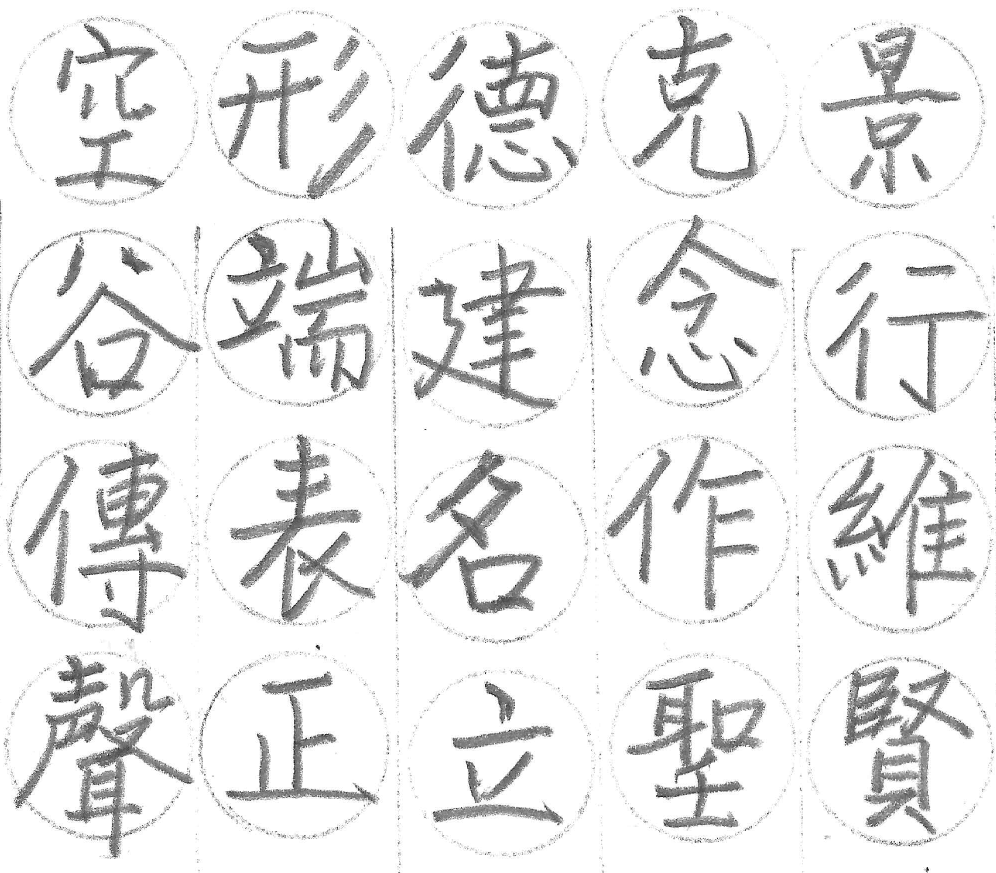 景行維賢
克念作聖
德建名立
形端表正
空谷傳聲